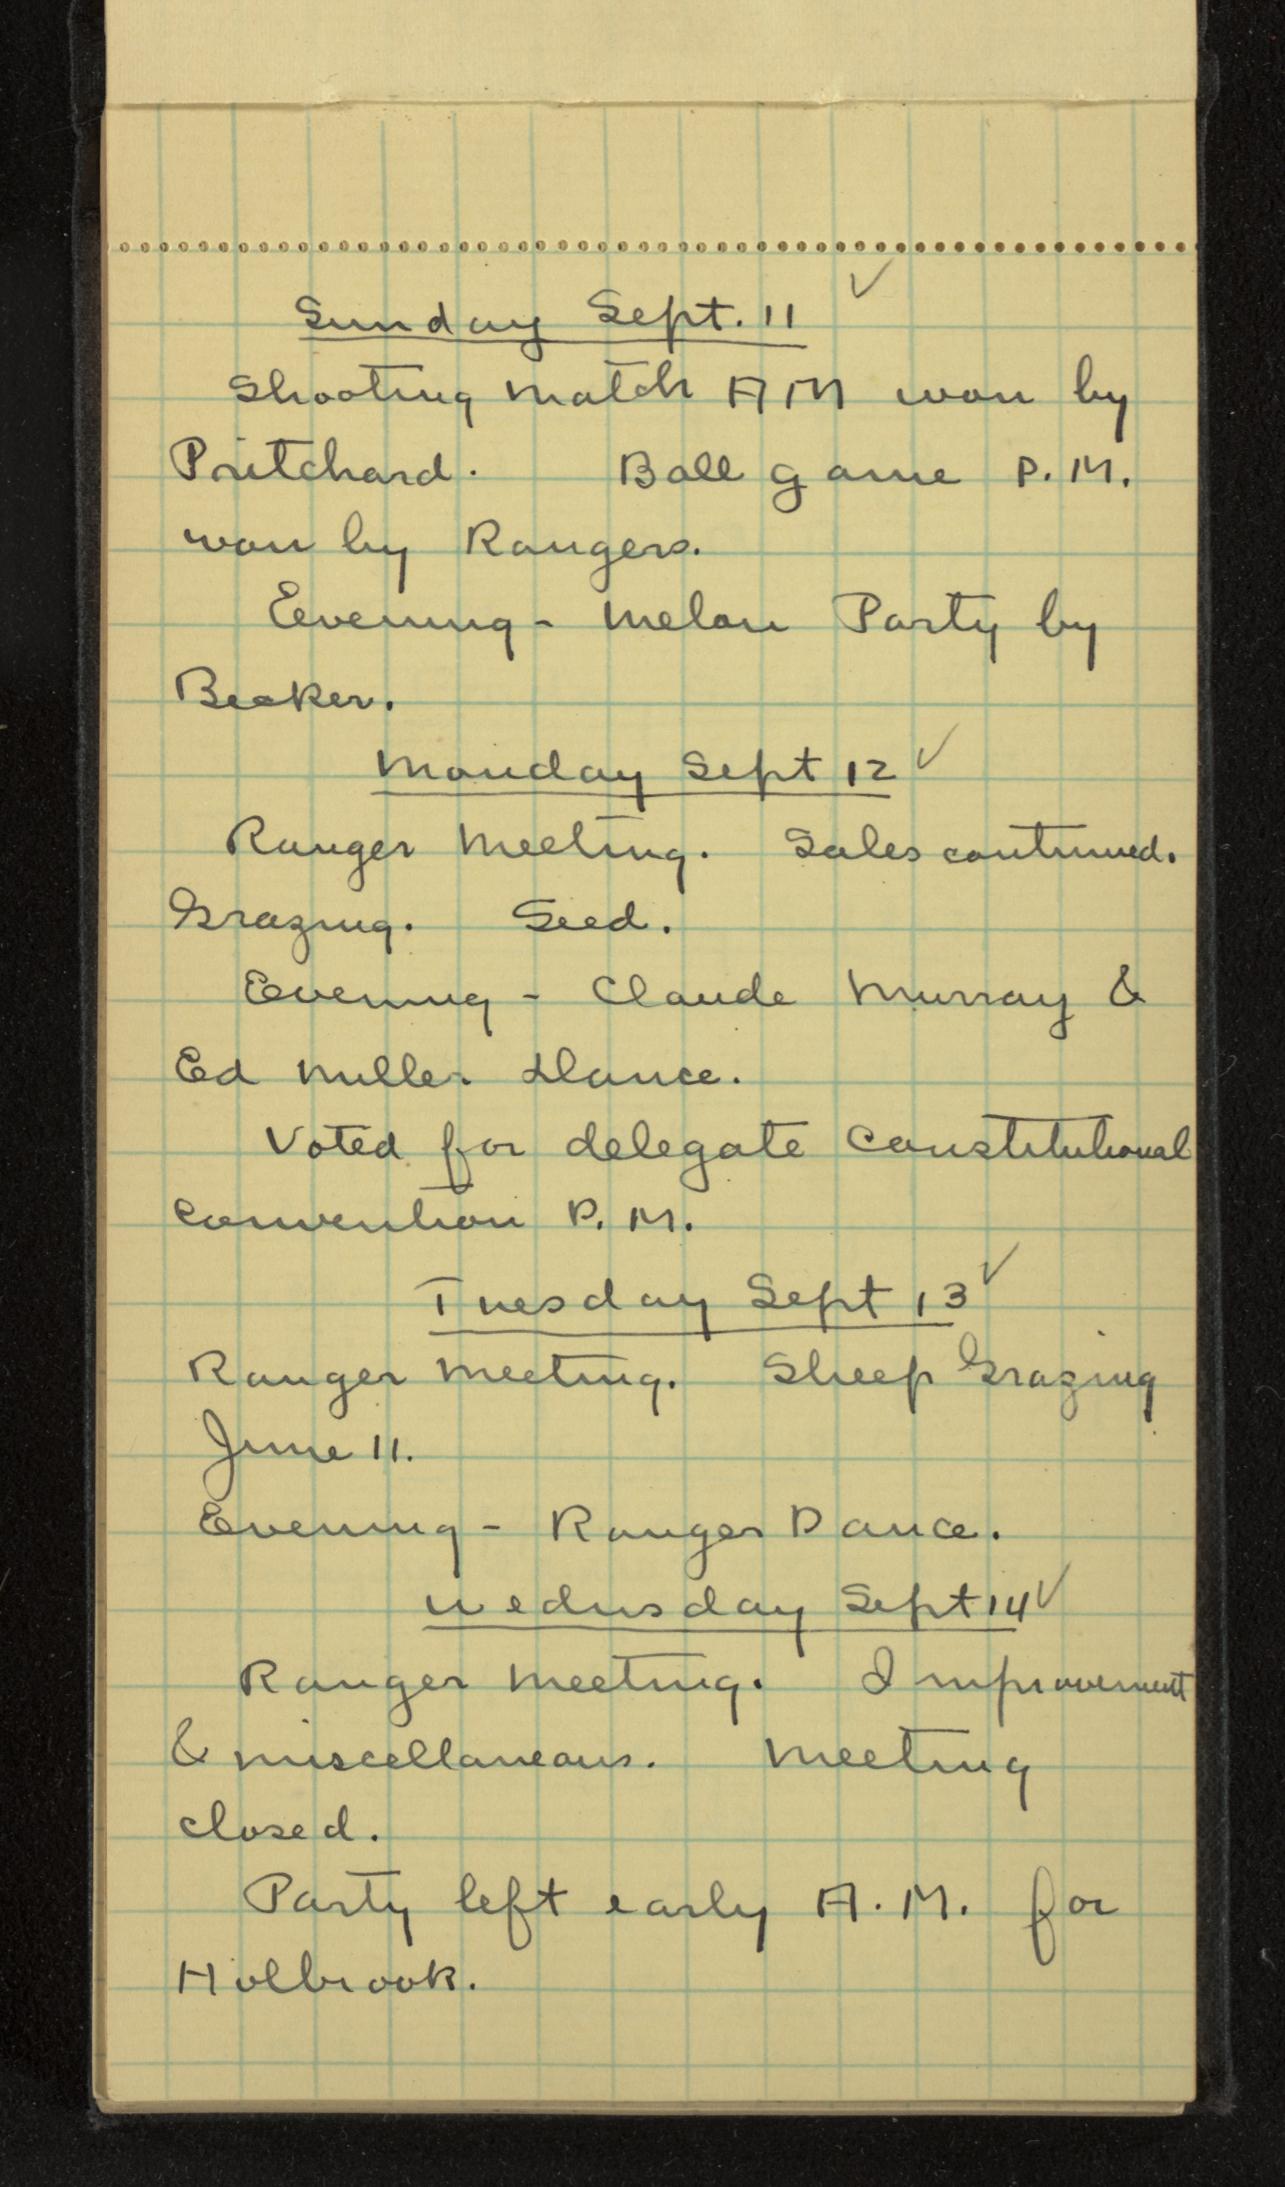 Sunday Sept. 11 ✓
Shooting Match AM won by
Pritchard. Ball game P.M.
won by Rangers.
Evening - Melon Party by
Becker.
Monday Sept 12 ✓
Ranger Meeting. Sales continued.
Grazing. Seed.
Evening - Claude Murray &
Ed Miller Dance.
Voted for delegate Constitutional
Convention P.M.
Tuesday Sept 13 ✓
Ranger Meeting. Sheep Grazing
June 11.
Evening - Ranger Dance.
Wednsday Sept 14 ✓
Ranger Meeting. Improvement
& miscellaneous. Meeting
closed.
Party left early A.M. for
Holbrook.